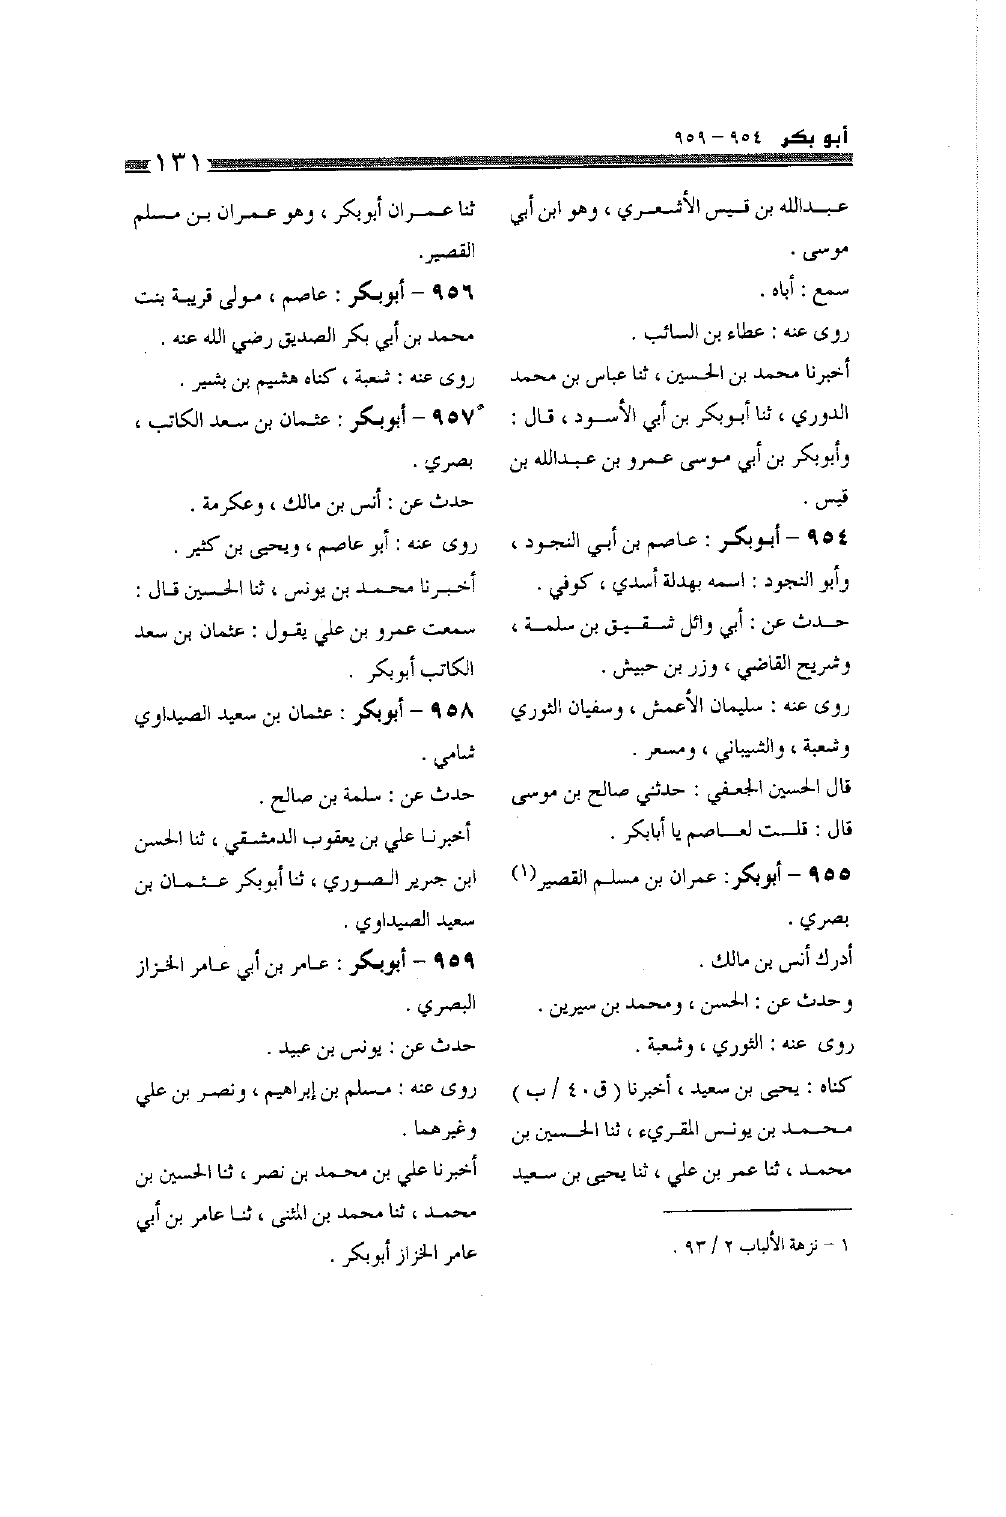 أبو بكر ٩٥٤ – ٩٥٩
١٣١
عبدالله بن قيس الأشعري ، وهو ابن أبي
موسى .
سمع : أباه .
روى عنه : عطاء بن السائب .
أخبرنا محمد بن الحسين ، ثنا عباس بن محمد
الدوري ، ثنا أبوبكر بن أبي الأسود ، قال :
وأبوبكر بن أبي موسى عمرو بن عبدالله بن
قيس .
٩٥٤ – أبوبكر : عاصم بن أبي النجود ،
وأبو النجود : اسمه بهدلة أسدي ، كوفي .
حدث عن : أبي وائل شقيق بن سلمة ،
وشريح القاضي ، وزر بن حبيش .
روى عنه : سليمان الأعمش ، وسفيان الثوري
وشعبة ، والشيباني ، ومسعر .
قال الحسين الجعفي : حدثني صالح بن موسى
قال : قلت لعاصم يا أبابكر .
٩٥٥ – أبوبكر : عمران بن مسلم القصير(١)
بصري .
أدرك أنس بن مالك .
وحدث عن : الحسن ، ومحمد بن سيرين .
روى عنه : الثوري ، وشعبة .
كناه : يحيى بن سعيد ، أخبرنا ( ق ٤٠ / ب )
محمد بن يونس المقريء ، ثنا الحسين بن
محمد ، ثنا عمر بن علي ، ثنا يحيى بن سعيد
١ – نزهة الألباب ٢ / ٩٣ .
ثنا عمران أبوبكر ، وهو عمران بن مسلم
القصير.
٩٥٦ – أبوبكر : عاصم ، مولى قريبة بنت
محمد بن أبي بكر الصديق رضي الله عنه .
روى عنه : شعبة ، كناه هشيم بن بشير .
*٩٥٧ – أبوبكر : عثمان بن سعد الكاتب ،
بصري .
حدث عن : أنس بن مالك ، وعكرمة .
روى عنه : أبو عاصم ، ويحيى بن كثير .
أخبرنا محمد بن يونس ، ثنا الحسين قال :
سمعت عمرو بن علي يقول : عثمان بن سعد
الكاتب أبوبكر .
٩٥٨ – أبوبكر : عثمان بن سعيد الصيداوي
شامي .
حدث عن : سلمة بن صالح .
أخبرنا علي بن يعقوب الدمشقي ، ثنا الحسن
ابن جرير الصوري ، ثنا أبوبكر عثمان بن
سعيد الصيداوي .
٩٥٩ – أبوبكر : عامر بن أبي عامر الخزاز
البصري .
حدث عن : يونس بن عبيد .
روى عنه : مسلم بن إبراهيم ، ونصر بن علي
وغيرهما .
أخبرنا علي بن محمد بن نصر ، ثنا الحسين بن
محمد ، ثنا محمد بن المثنى ، ثنا عامر بن أبي
عامر الخزاز أبوبكر .